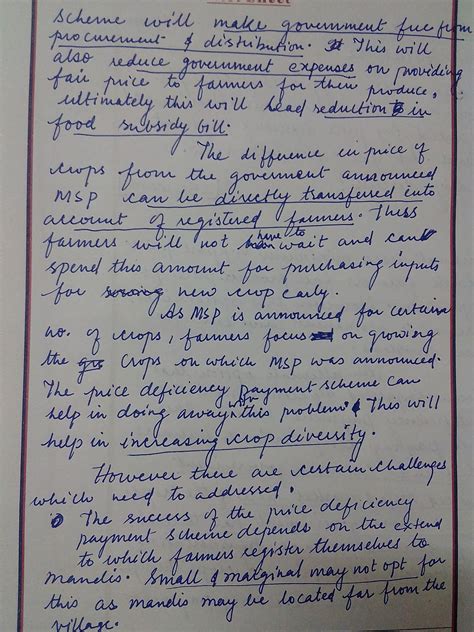 scheme will make government free from
procurement & distribution. This will
also reduce government expenses on providing
fair price to farmers for their produce,
ultimately this will lead reduction in
food subsidy bill.
The difference in price of
crops from the government announced
MSP can be directly transferred into
account of registered farmers. Thus
farmers will not have to wait and can
spend this amount for purchasing inputs
for sowing new crop early.
As MSP is announced for certain
no. of crops, farmers focus on growing
the crops on which MSP was announced.
The price deficiency payment scheme can
help in doing away with this problem. This will
help in increasing crop diversity.
However there are certain challenges
which need to addressed.
The success of the price deficiency
payment scheme depends on the extend
to which farmers register themselves to
mandis. Small & marginal may not opt for
this as mandis may be located far from the
village.